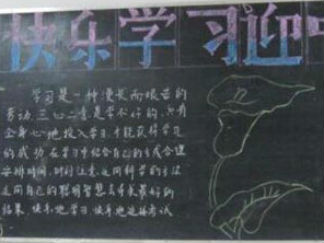 快乐学习迎中
学习是一种漫长而艰苦的
劳动,三心二意是学不好的,只有
全身心地投入学习,才能获得学习
的成功,在学习中结合自己的方式合理
安排时间,时时注意运用科学的方法
运用自己的聪明智慧去寻求最好的
结果,快乐地学习,快乐地迎接考试